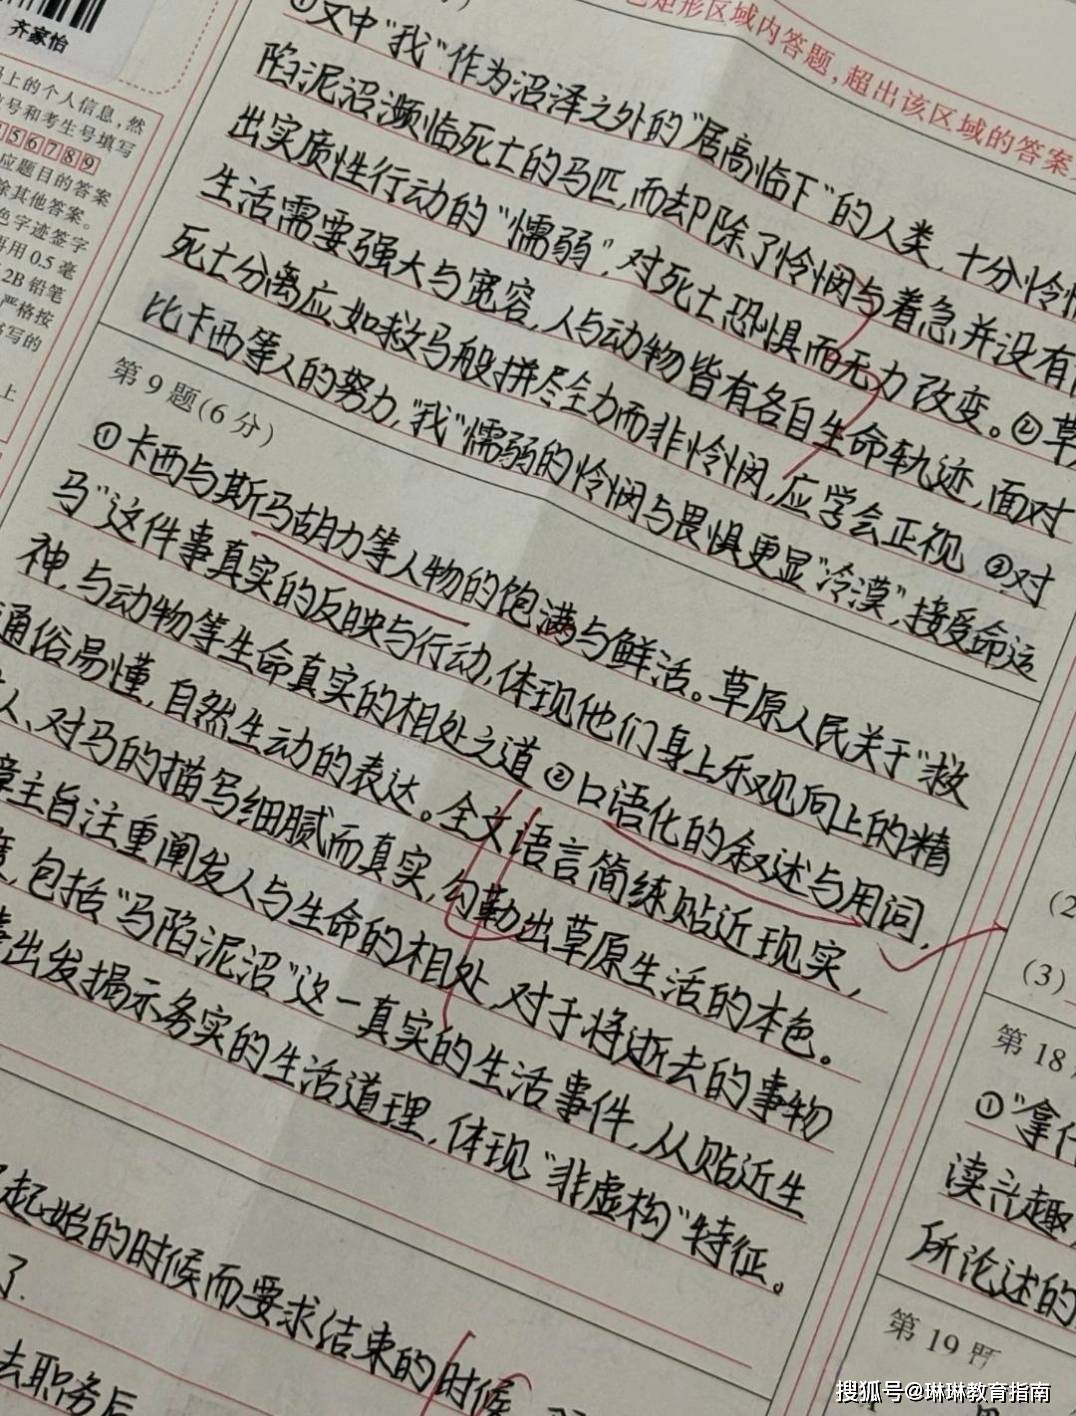 齐家怡
码上的个人信息,然
号和考生号填写
5 6 7 8 9
应题目的答案
除其他答案。
色字迹签字
再用0.5毫
2B铅笔
严格按
书写的
上
矩形区域内答题,超出该区域的答案
①文中“我”作为沼泽之外的“居高临下”的人类,十分怜悯
陷泥沼濒临死亡的马匹,而却除了怜悯与着急并没有
出实质性行动的“懦弱”,对死亡恐惧而无力改变。②草
生活需要强大与宽容,人与动物皆有各自生命轨迹,面对
死亡分离应如救马般拼尽全力而非怜悯,应学会正视 ③对
比卡西等人的努力,“我”懦弱的怜悯与畏惧更显“冷漠”,接受命运
第9题(6分)
①卡西与斯马胡力等人物的饱满与鲜活。草原人民关于“救
马”这件事真实的反映与行动,体现他们身上乐观向上的精
神,与动物等生命真实的相处之道 ②口语化的叙述与用词,
通俗易懂,自然生动的表达。全文语言简练贴近现实,
人、对马的描写细腻而真实,勾勒出草原生活的本色。
章主旨注重阐发人与生命的相处,对于将逝去的事物
,包括“马陷泥沼”这一真实的生活事件,从贴近生
出发揭示务实的生活道理,体现“非虚构”特征。
起始的时候而要求结束的时候
了.
去职务后
(2
(3)
第18
①“拿什
读兴趣
所论述的
第19题
搜狐号@琳琳教育指南